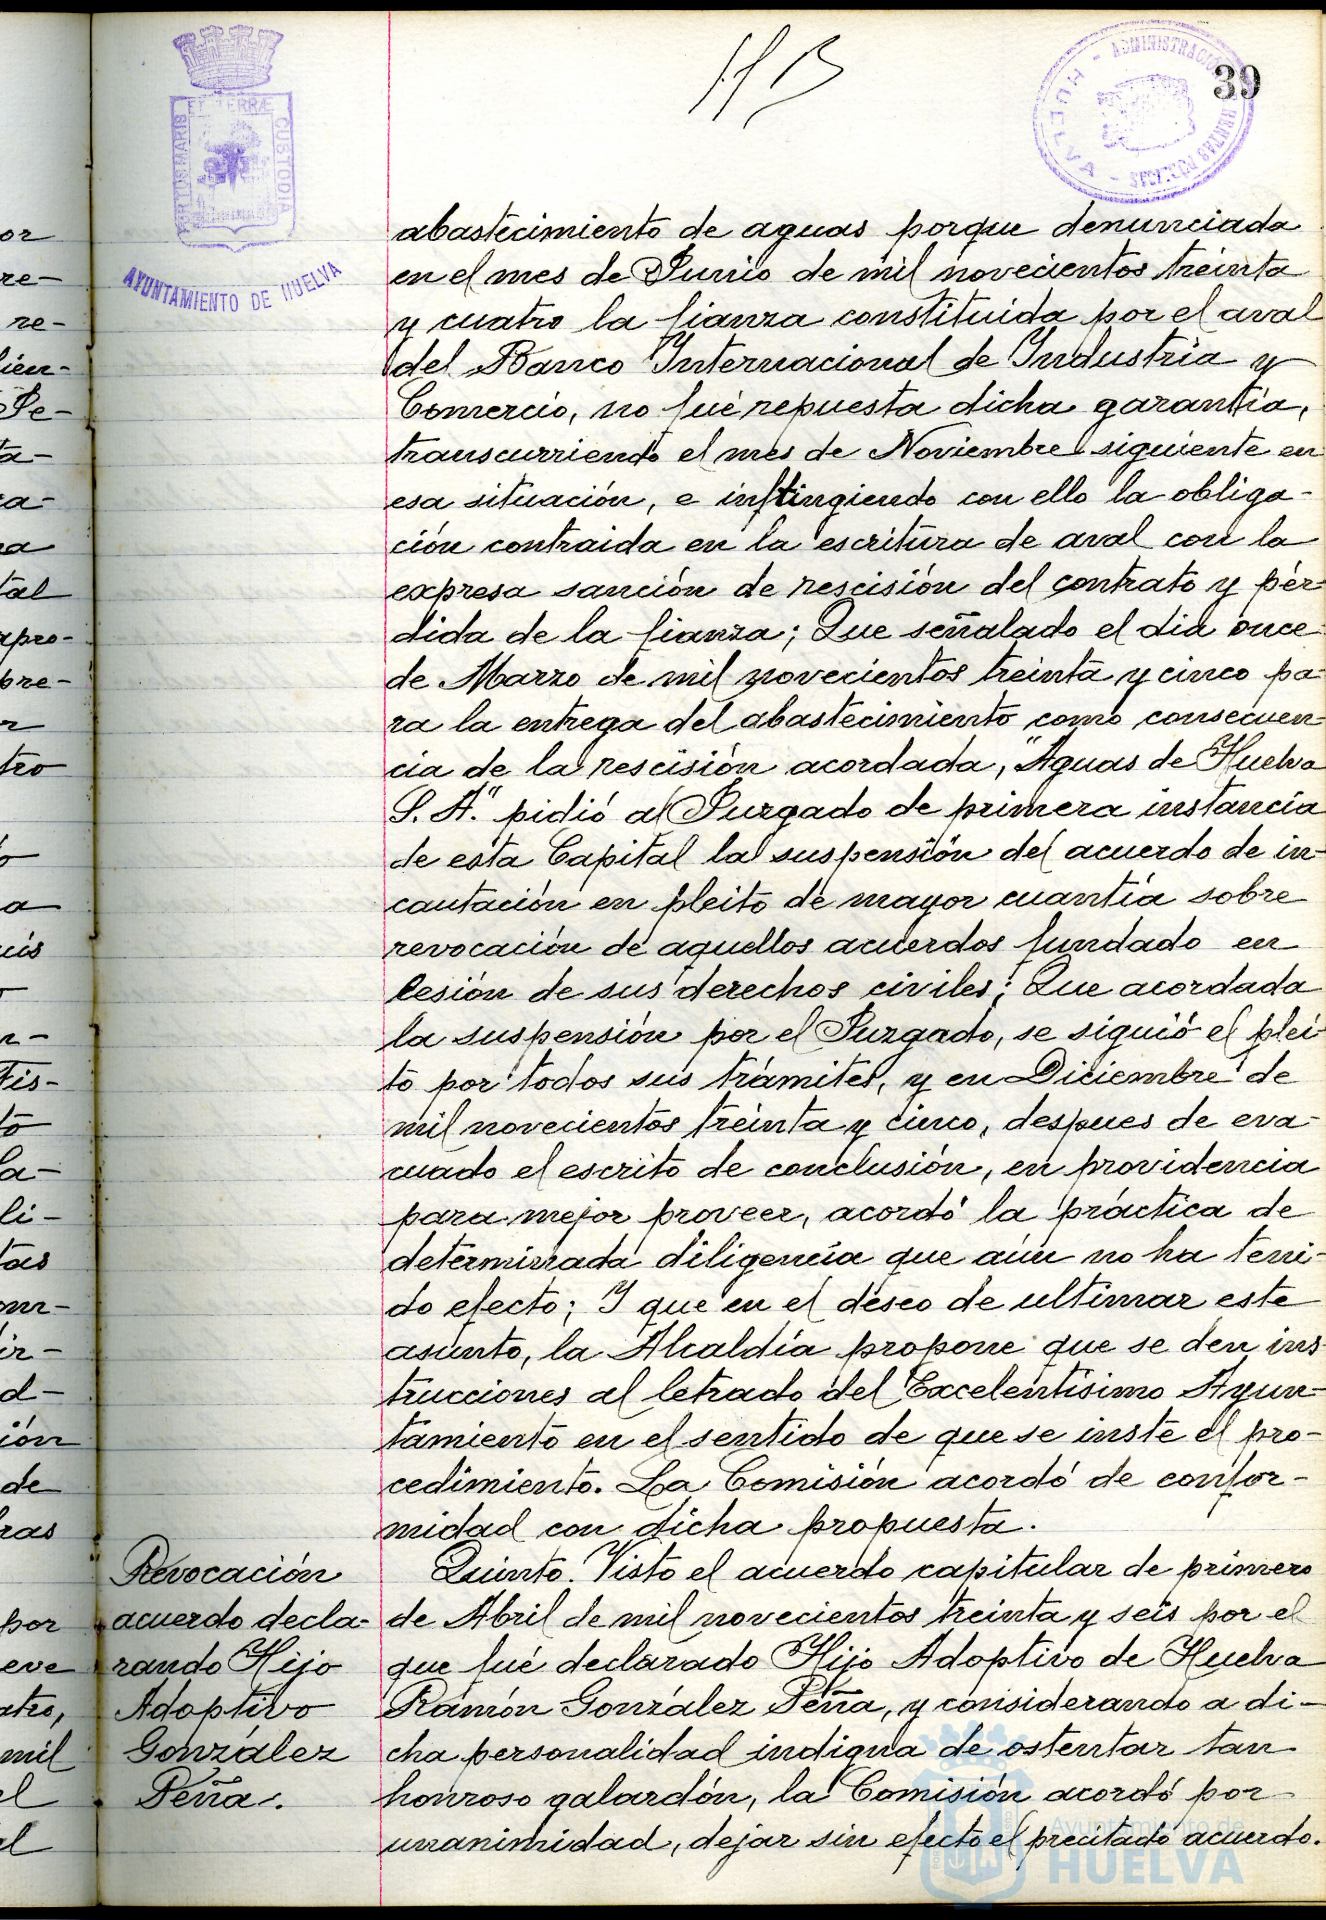 39
PORTUS MARIS ET TERRÆ CUSTODIA
AYUNTAMIENTO DE HUELVA
ADMINISTRACIÓN RENTAS PÚBLICAS
- HUELVA -
abastecimiento de aguas porque denunciada
en el mes de Junio de mil novecientos treinta
y cuatro la fianza constituida por el aval
del Banco Internacional de Industria y
Comercio, no fué repuesta dicha garantía,
transcurriendo el mes de Noviembre siguiente en
esa situación, e infringiendo con ello la obliga-
ción contraida en la escritura de aval con la
expresa sanción de rescisión del contrato y pér-
dida de la fianza; Que señalado el dia once
de Marzo de mil novecientos treinta y cinco pa-
ra la entrega del abastecimiento como consecuen-
cia de la rescisión acordada, "Aguas de Huelva
S.A." pidió al Juzgado de primera instancia
de esta Capital la suspensión del acuerdo de in-
cautación en pleito de mayor cuantía sobre
revocación de aquellos acuerdos fundado en
lesión de sus derechos civiles; Que acordada
la suspensión por el Juzgado, se siguió el plei-
to por todos sus trámites, y en Diciembre de
mil novecientos treinta y cinco, despues de eva-
cuado el escrito de conclusión, en providencia
para mejor proveer, acordó la práctica de
determinada diligencia que aún no ha teni-
do efecto; Y que en el deseo de ultimar este
asunto, la Alcaldía propone que se den ins-
trucciones al letrado del Excelentísimo Ayun-
tamiento en el sentido de que se inste el pro-
cedimiento. La Comisión acordó de confor-
midad con dicha propuesta.
Revocación
acuerdo decla-
rando Hijo
Adoptivo
González
Peña.
Quinto. Visto el acuerdo capitular de primero
de Abril de mil novecientos treinta y seis por el
que fué declarado Hijo Adoptivo de Huelva
Ramón González Peña, y considerando a di-
cha personalidad indigna de ostentar tan
honroso galardón, la Comisión acordó por
unanimidad, dejar sin efecto el precitado acuerdo.
Ayuntamiento de
HUELVA
or
re-
re-
lien-
Pe-
ta-
ca-
na
tal
apro-
bre-
tro
a
n-
Fis-
to
la-
li-
tas
ir-
d-
ión
de
ras
por
eve
atro,
mil
el
al